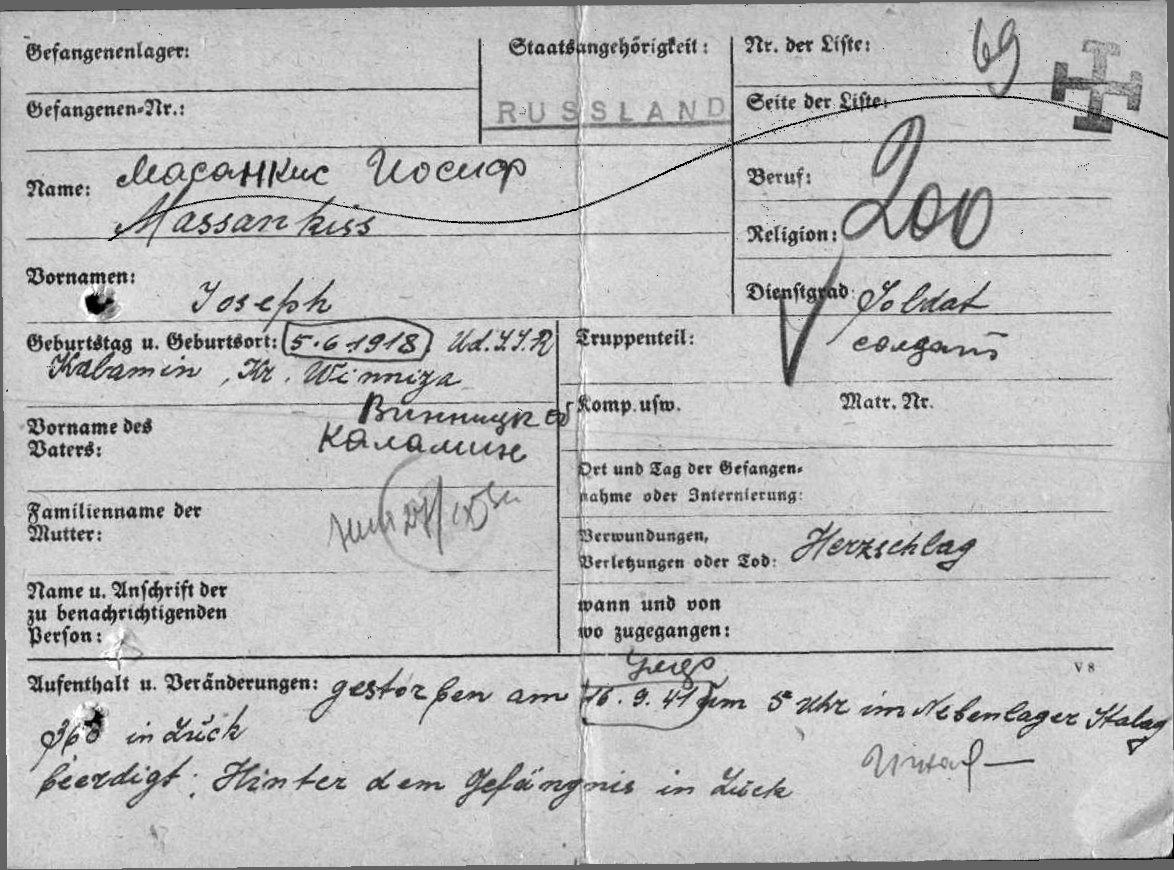 Gefangenenlager:
Staatsangehörigkeit:
Nr. der Liste:
69
Gefangenen-Nr.:
RUSSLAND
Seite der Liste:
Name:
Масанкис Иосиф
Massankiss
Beruf:
Religion:
200
Vornamen:
Joseph
Dienstgrad
Soldat
солдат
Geburtstag u. Geburtsort: 5.6.1918 Ud.S.S.R
Kalamin, Kr. Winniza
Винницк об
Каламин
Truppenteil:
Komp. usw.
Matr. Nr.
Vorname des
Vaters:
Ort und Tag der Gefangen-
nahme oder Internierung:
Familienname der
Mutter:
Verwundungen,
Verletzungen oder Tod:
Herzschlag
Name u. Anschrift der
zu benachrichtigenden
Person:
wann und von
wo zugegangen:
V 8
умер
Aufenthalt u. Veränderungen: gestorben am 16.9.41 um 5 Uhr im Nebenlager Stalag
360 in Luck
beerdigt: Hinter dem Gefängnis in Luck